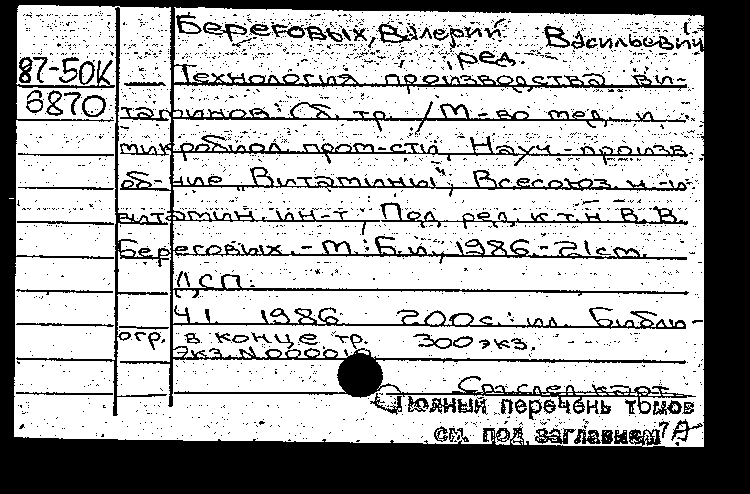 Береговых, Валерий Васильевич
ред.
87-50К Технология производства ви-
6870 таминов: Сб. тр. / М-во мед. и
микробиол. пром-сти, Науч.-произв.
об-ние "Витамины", Всесоюз. н.-и.
витамин. ин-т; Под ред. к.т.н. В. В.
Береговых. - М.: Б.и., 1986. - 21 см.
ДСП.
Ч.1 1986 200 с.: ил. Библи-
огр. в конце тр. 300 экз.
Экз. N 000010
См. след. карт.
Полный перечень томов
см. под заглавием